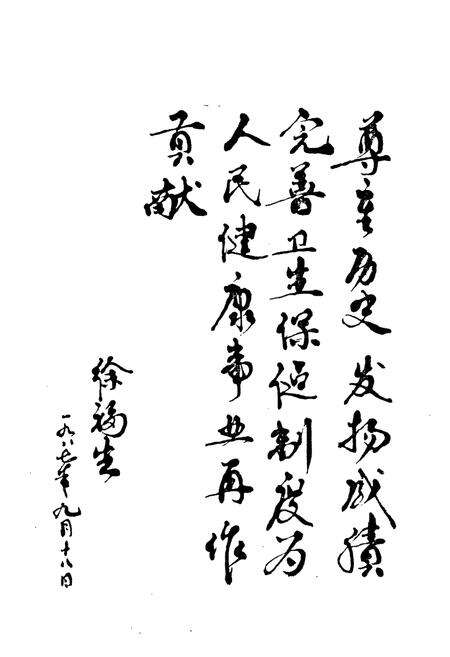 尊重历史 发扬成绩
完善卫生保健制度为
人民健康事业再作
贡献
徐福生
一九八七年九月十八日